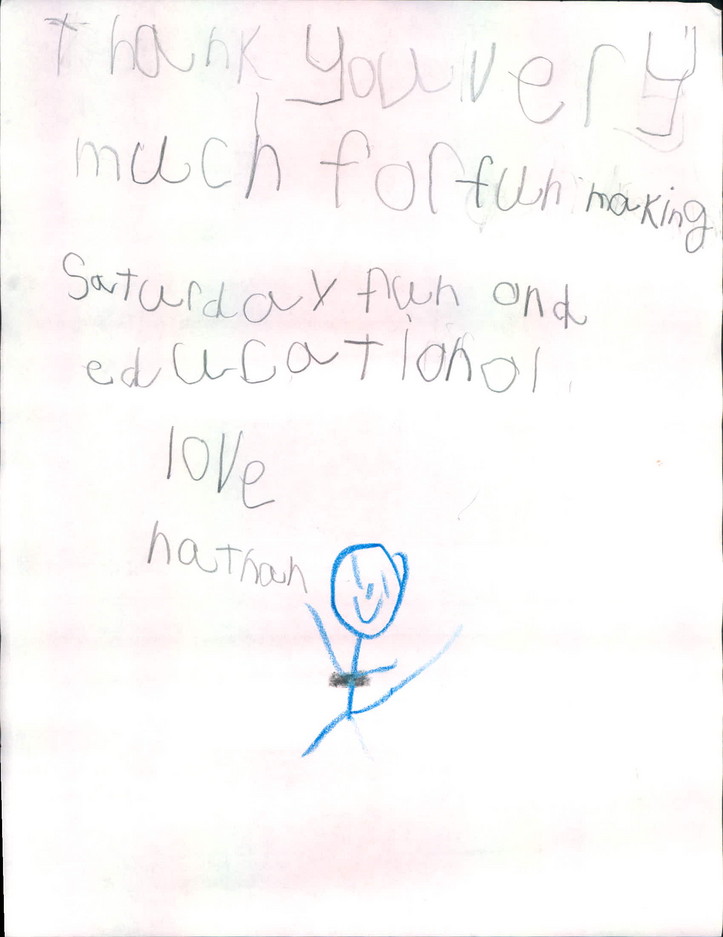 Thank you very
much for fun making
Saturday fun and
educational.
love
nathan